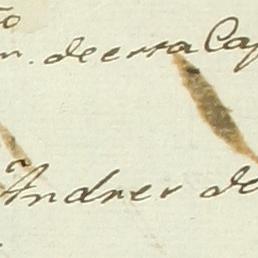 to
n. de essa Cap
n Andres de